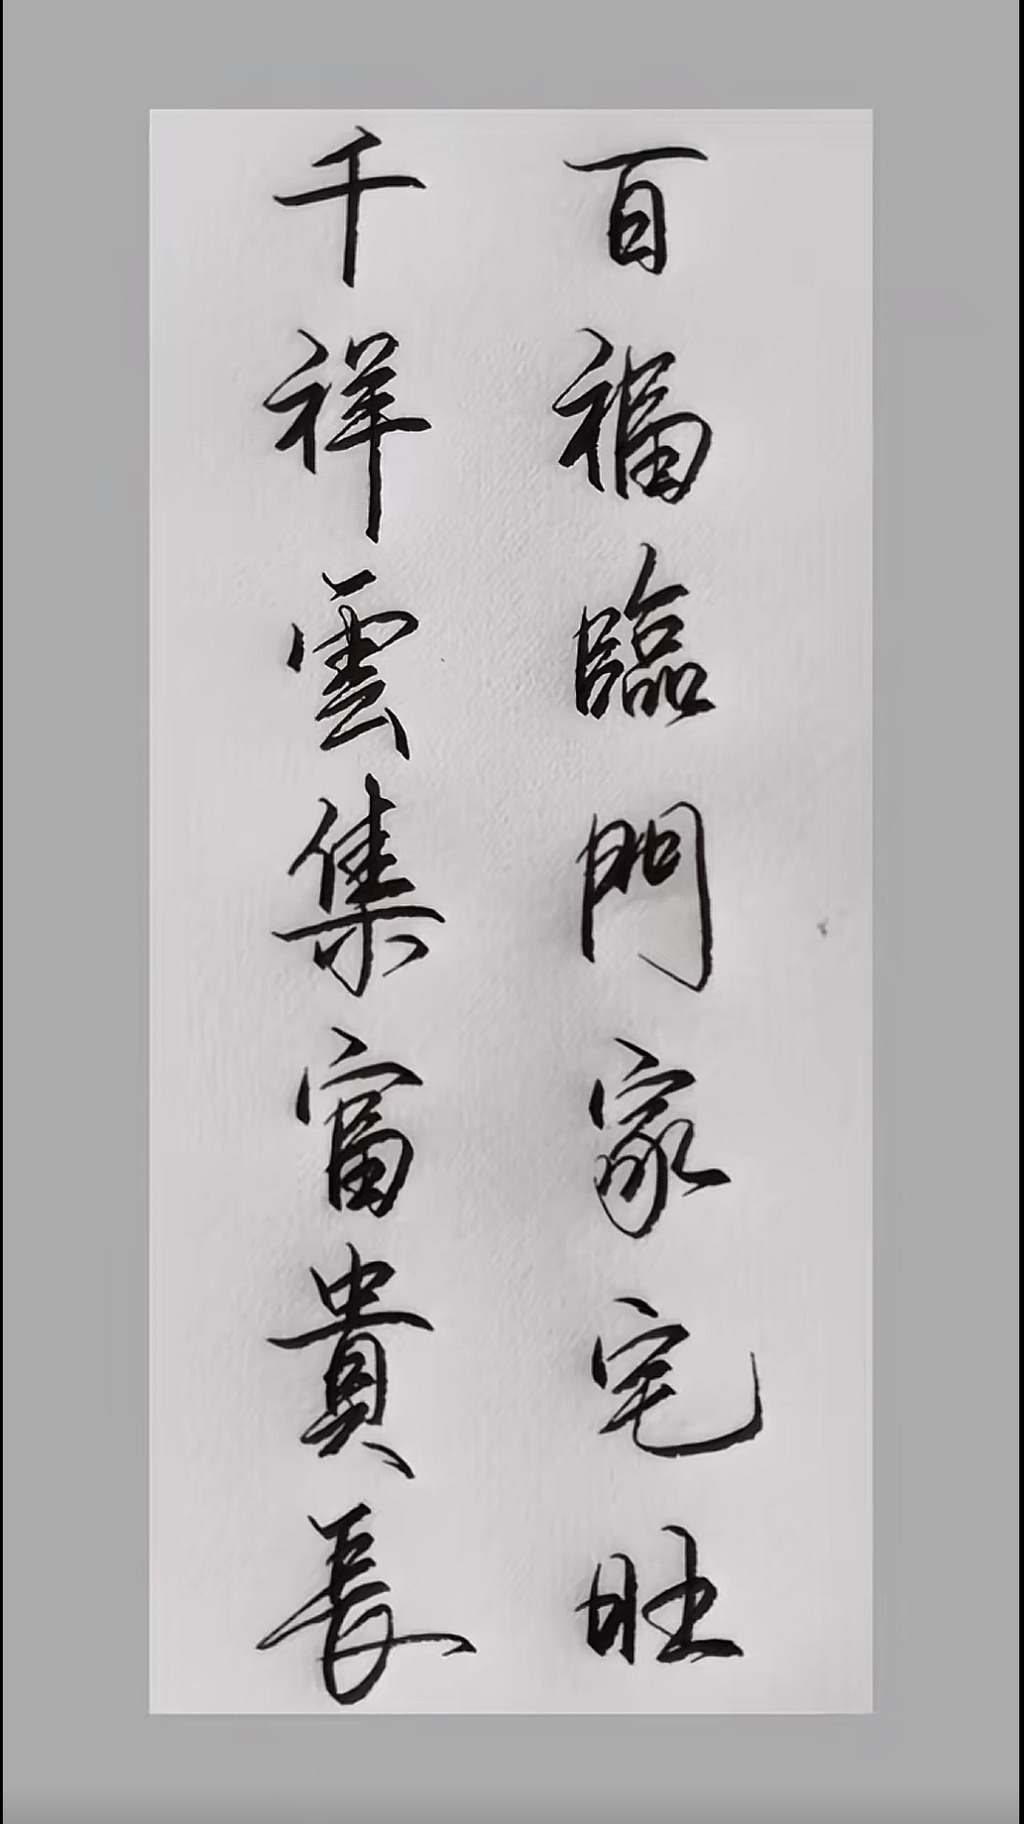 百福臨門家宅旺
千祥雲集富貴長